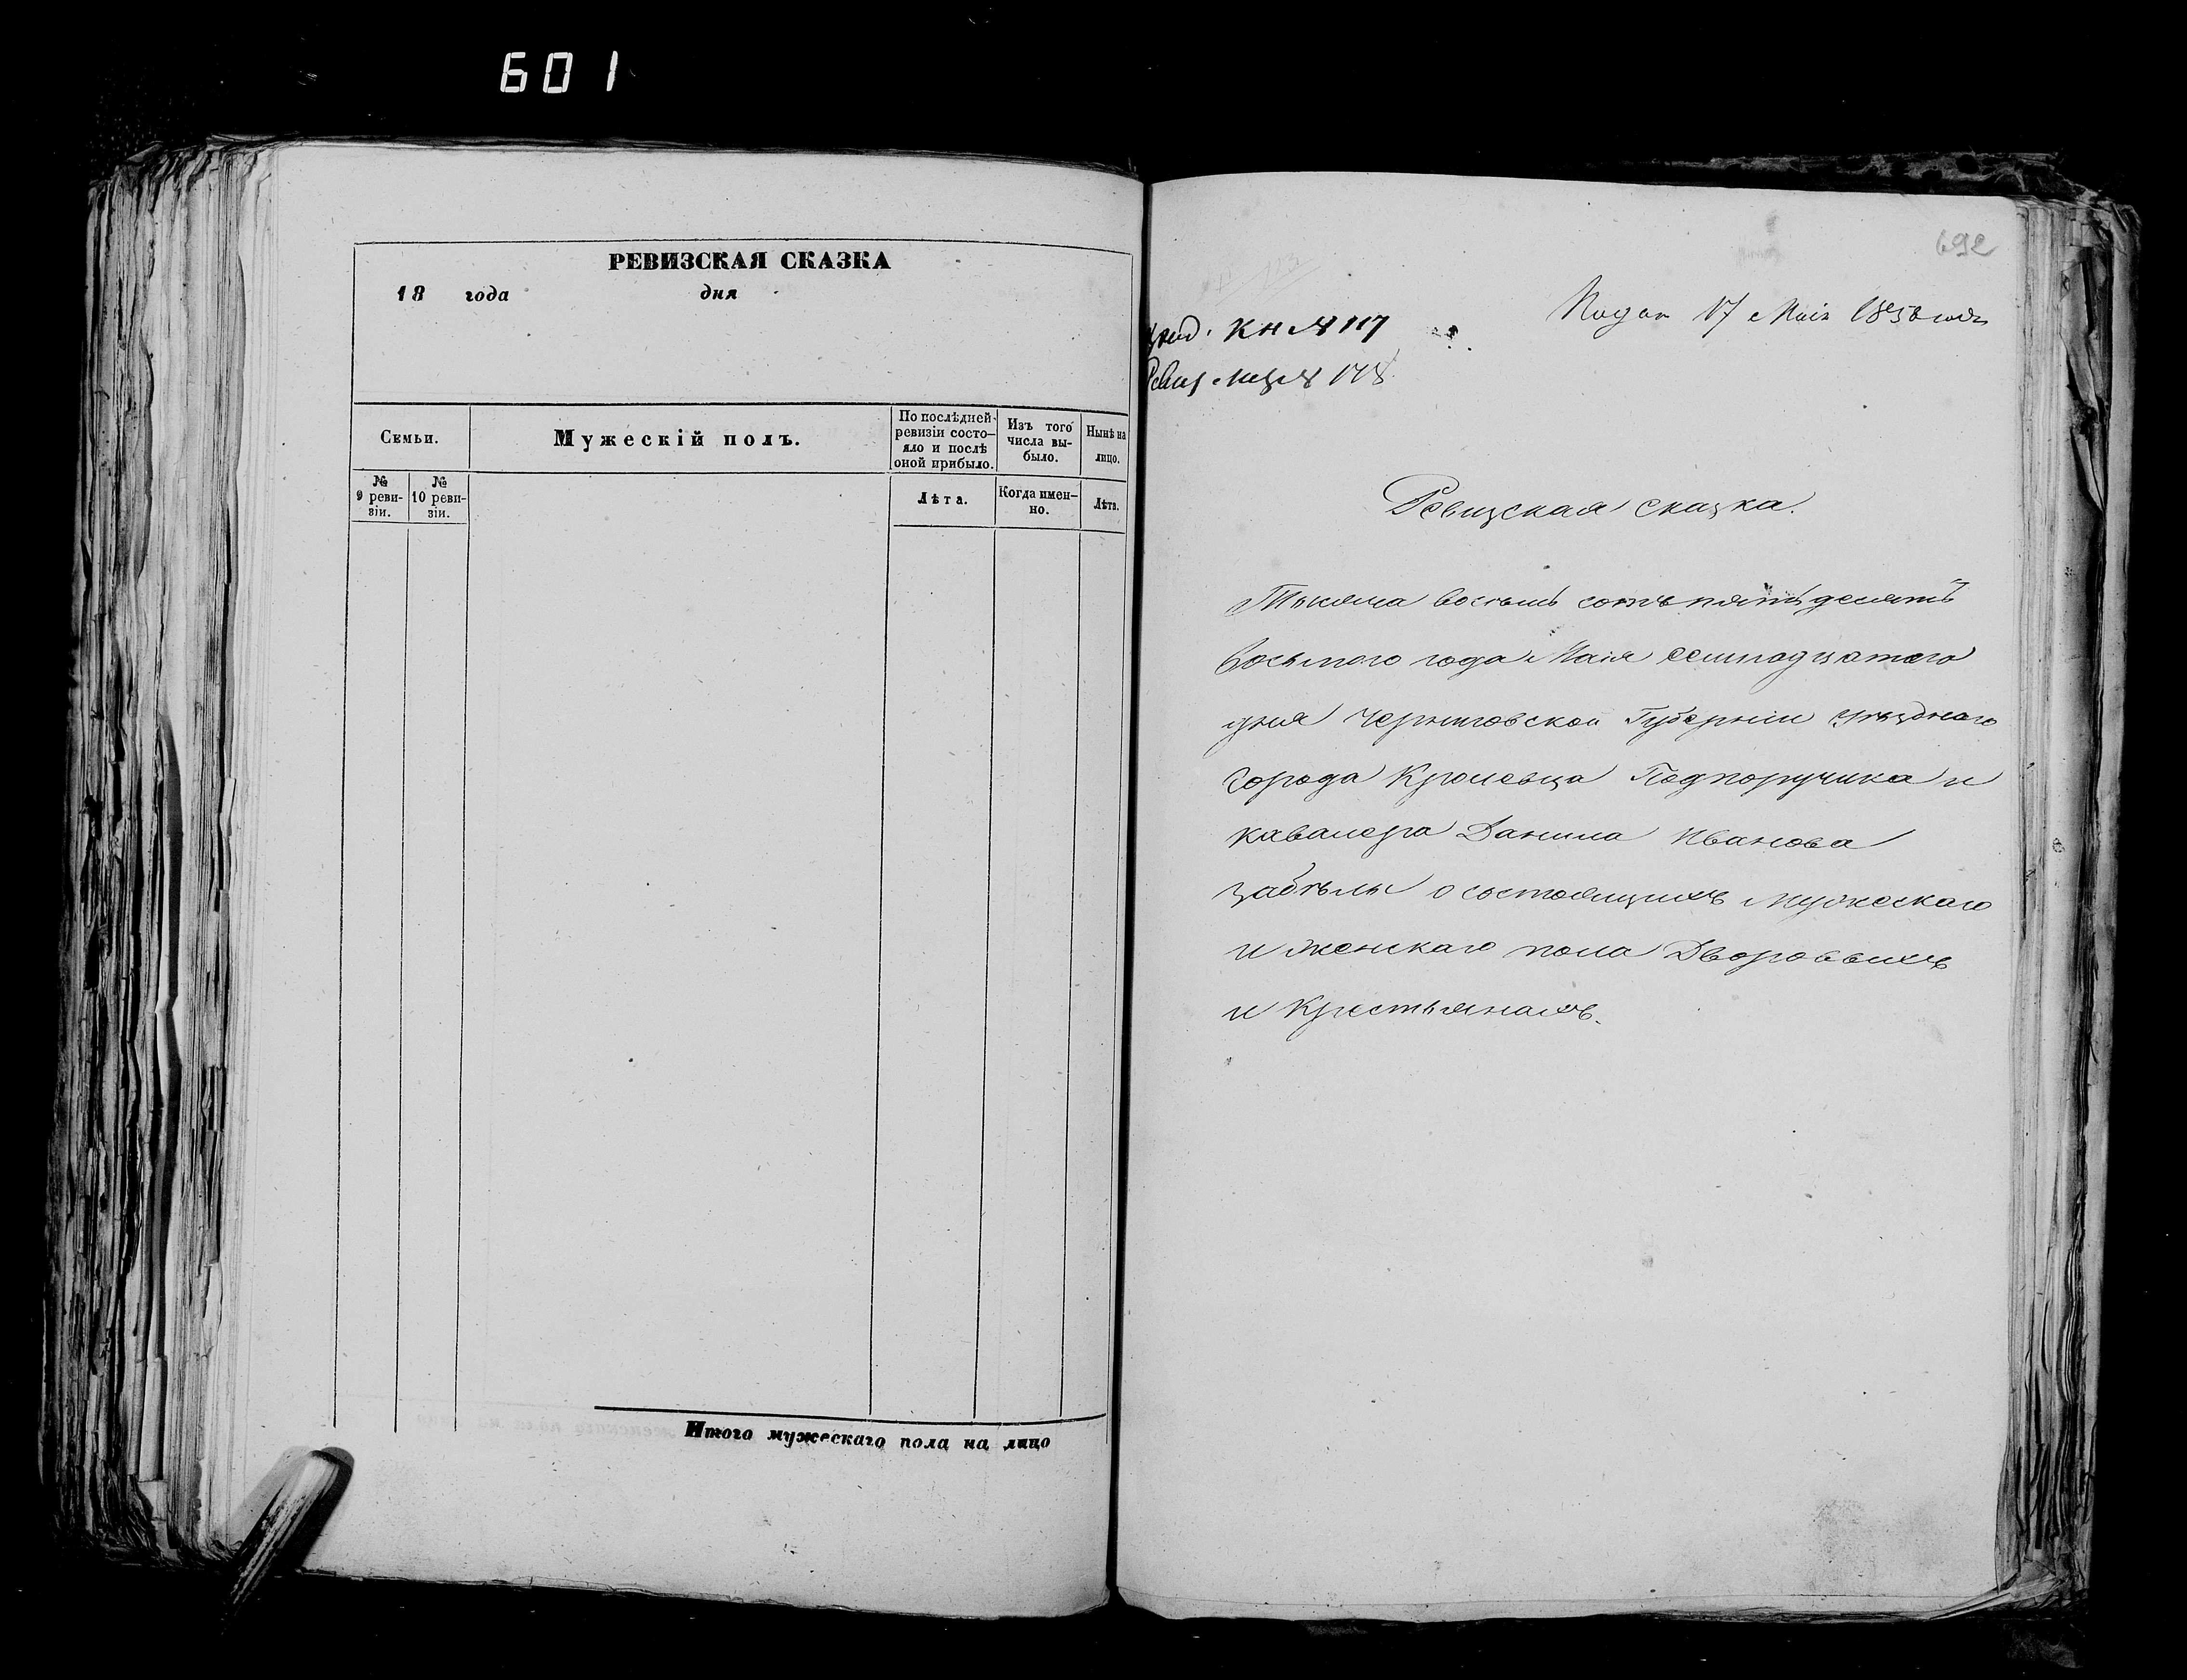 601
РЕВИЗСКАЯ СКАЗКА
18 года дня
Семьи.
Мужескій полъ.
По послѣдней
ревизіи состо-
яло и послѣ
оной прибыло.
Изъ того
числа вы-
было.
Нынѣ на
лицо.
№
9 реви-
зіи.
№
10 реви-
зіи.
Лѣта.
Когда имен-
но.
Лѣта.
Итого мужескаго пола на лицо
692
Подан 17 Маія 1858 года
Кн № 117
№ 178
Ревизская сказка.
Тысяча восемь сотъ пятьдесятъ
восьмого года Маія семнадцатого
дня Черниговской Губерніи уѣзднаго
города Кролевца Подпоручика и
кавалера Данила Иванова
Забѣлы о состоящихъ мужескаго
и женскаго пола Дворовыхъ
и Крестьянахъ.